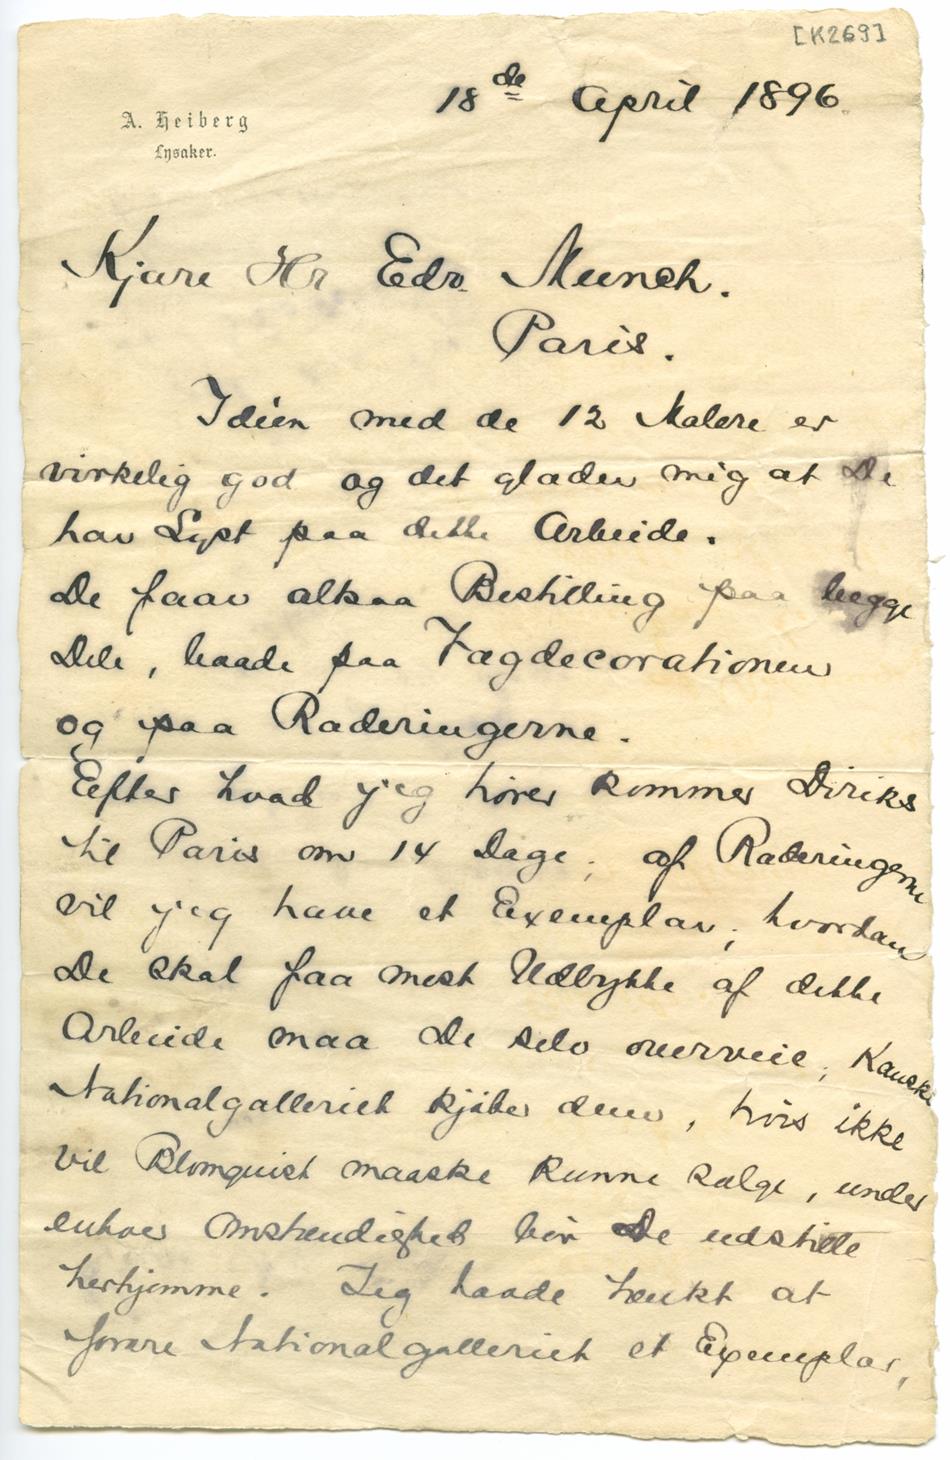 [K269]
18de April 1896
A. Heiberg
Lysaker.
Kjære Hr Edv. Munch.
Paris.
Idéen med de 12 Malere er
virkelig god og det glæder mig at De
har Lyst paa dette Arbeide.
De faar altsaa Bestilling paa begge
Dele, baade paa Vægdecorationen
og paa Raderingerne.
Eefter hvad jeg hører kommer Diriks
til Paris om 14 Dage, af Raderingerne
vil jeg have et Exemplar, hvordan
De skal faa mest Udbytte af dette
Arbeide maa De selv overveie, Kanske
Nationalgalleriet kjøber dem, hvis ikke
vil Blomquist maaske kunne sælge, under
enhver Omstændighed bør De udstille
herhjemme. Jeg havde tænkt at
forære Nationalgalleriet et Exemplar,